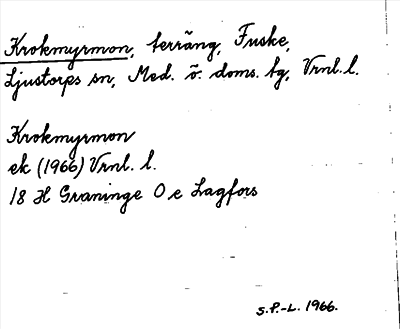 Krokmyrmon, terräng, Fuske,
Ljustorps sn, Med. ö. doms. tg, Vrnl. l.
Krokmyrmon
ek (1966) Vrnl. l.
18 H Graninge O e Lagfors
S.P.-L. 1966.